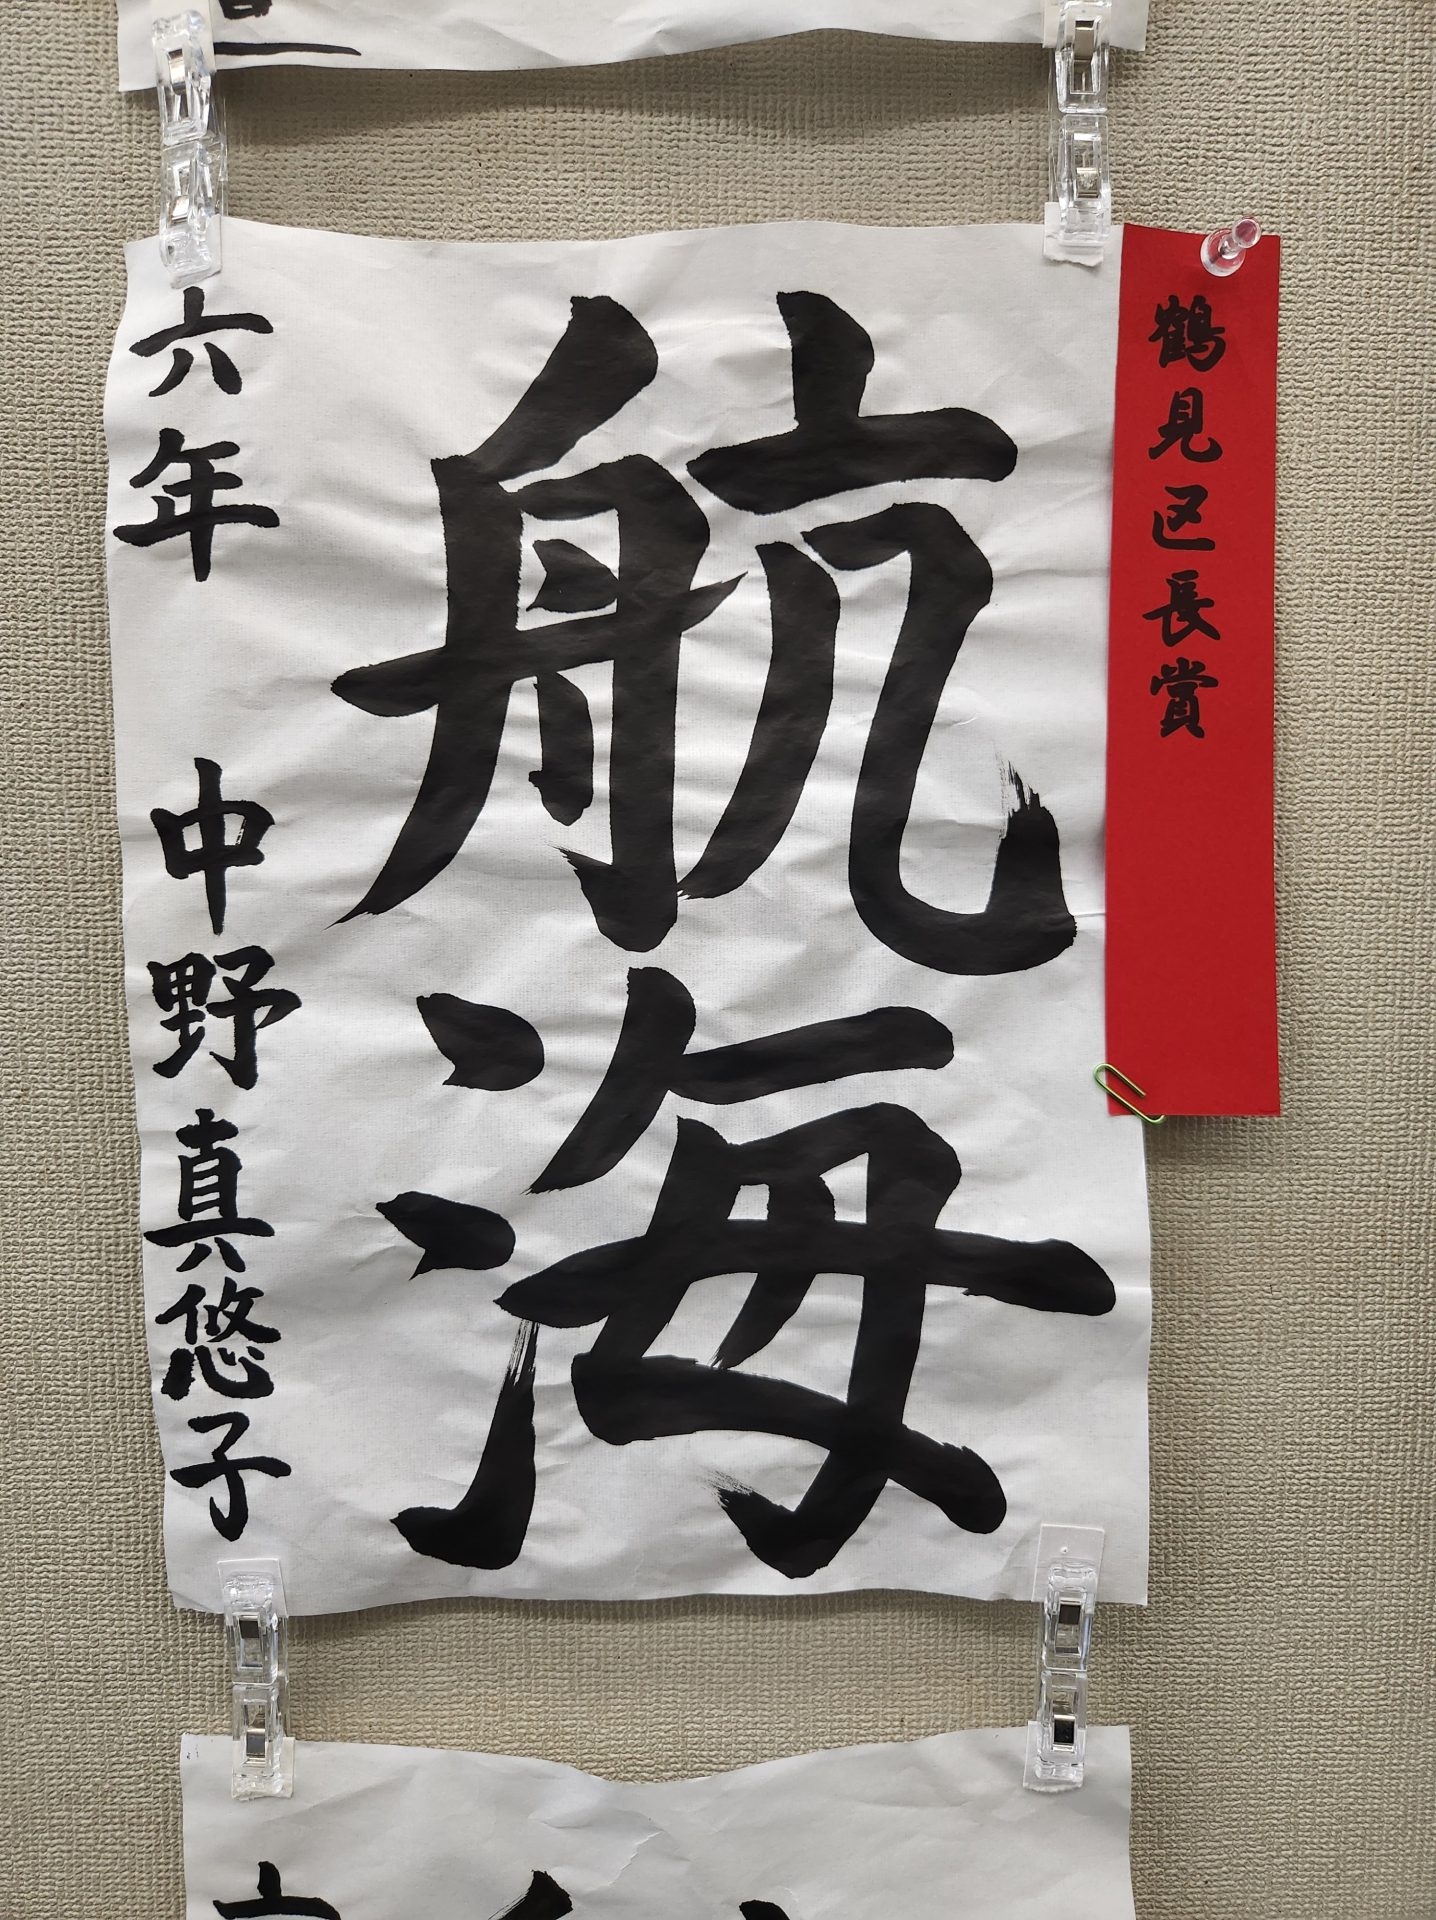 鶴見区長賞
航海
六年 中野真悠子